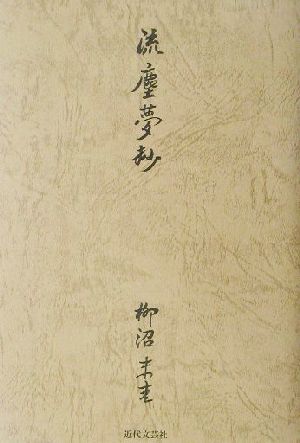 流塵夢抄
柳沼未圭
近代文芸社